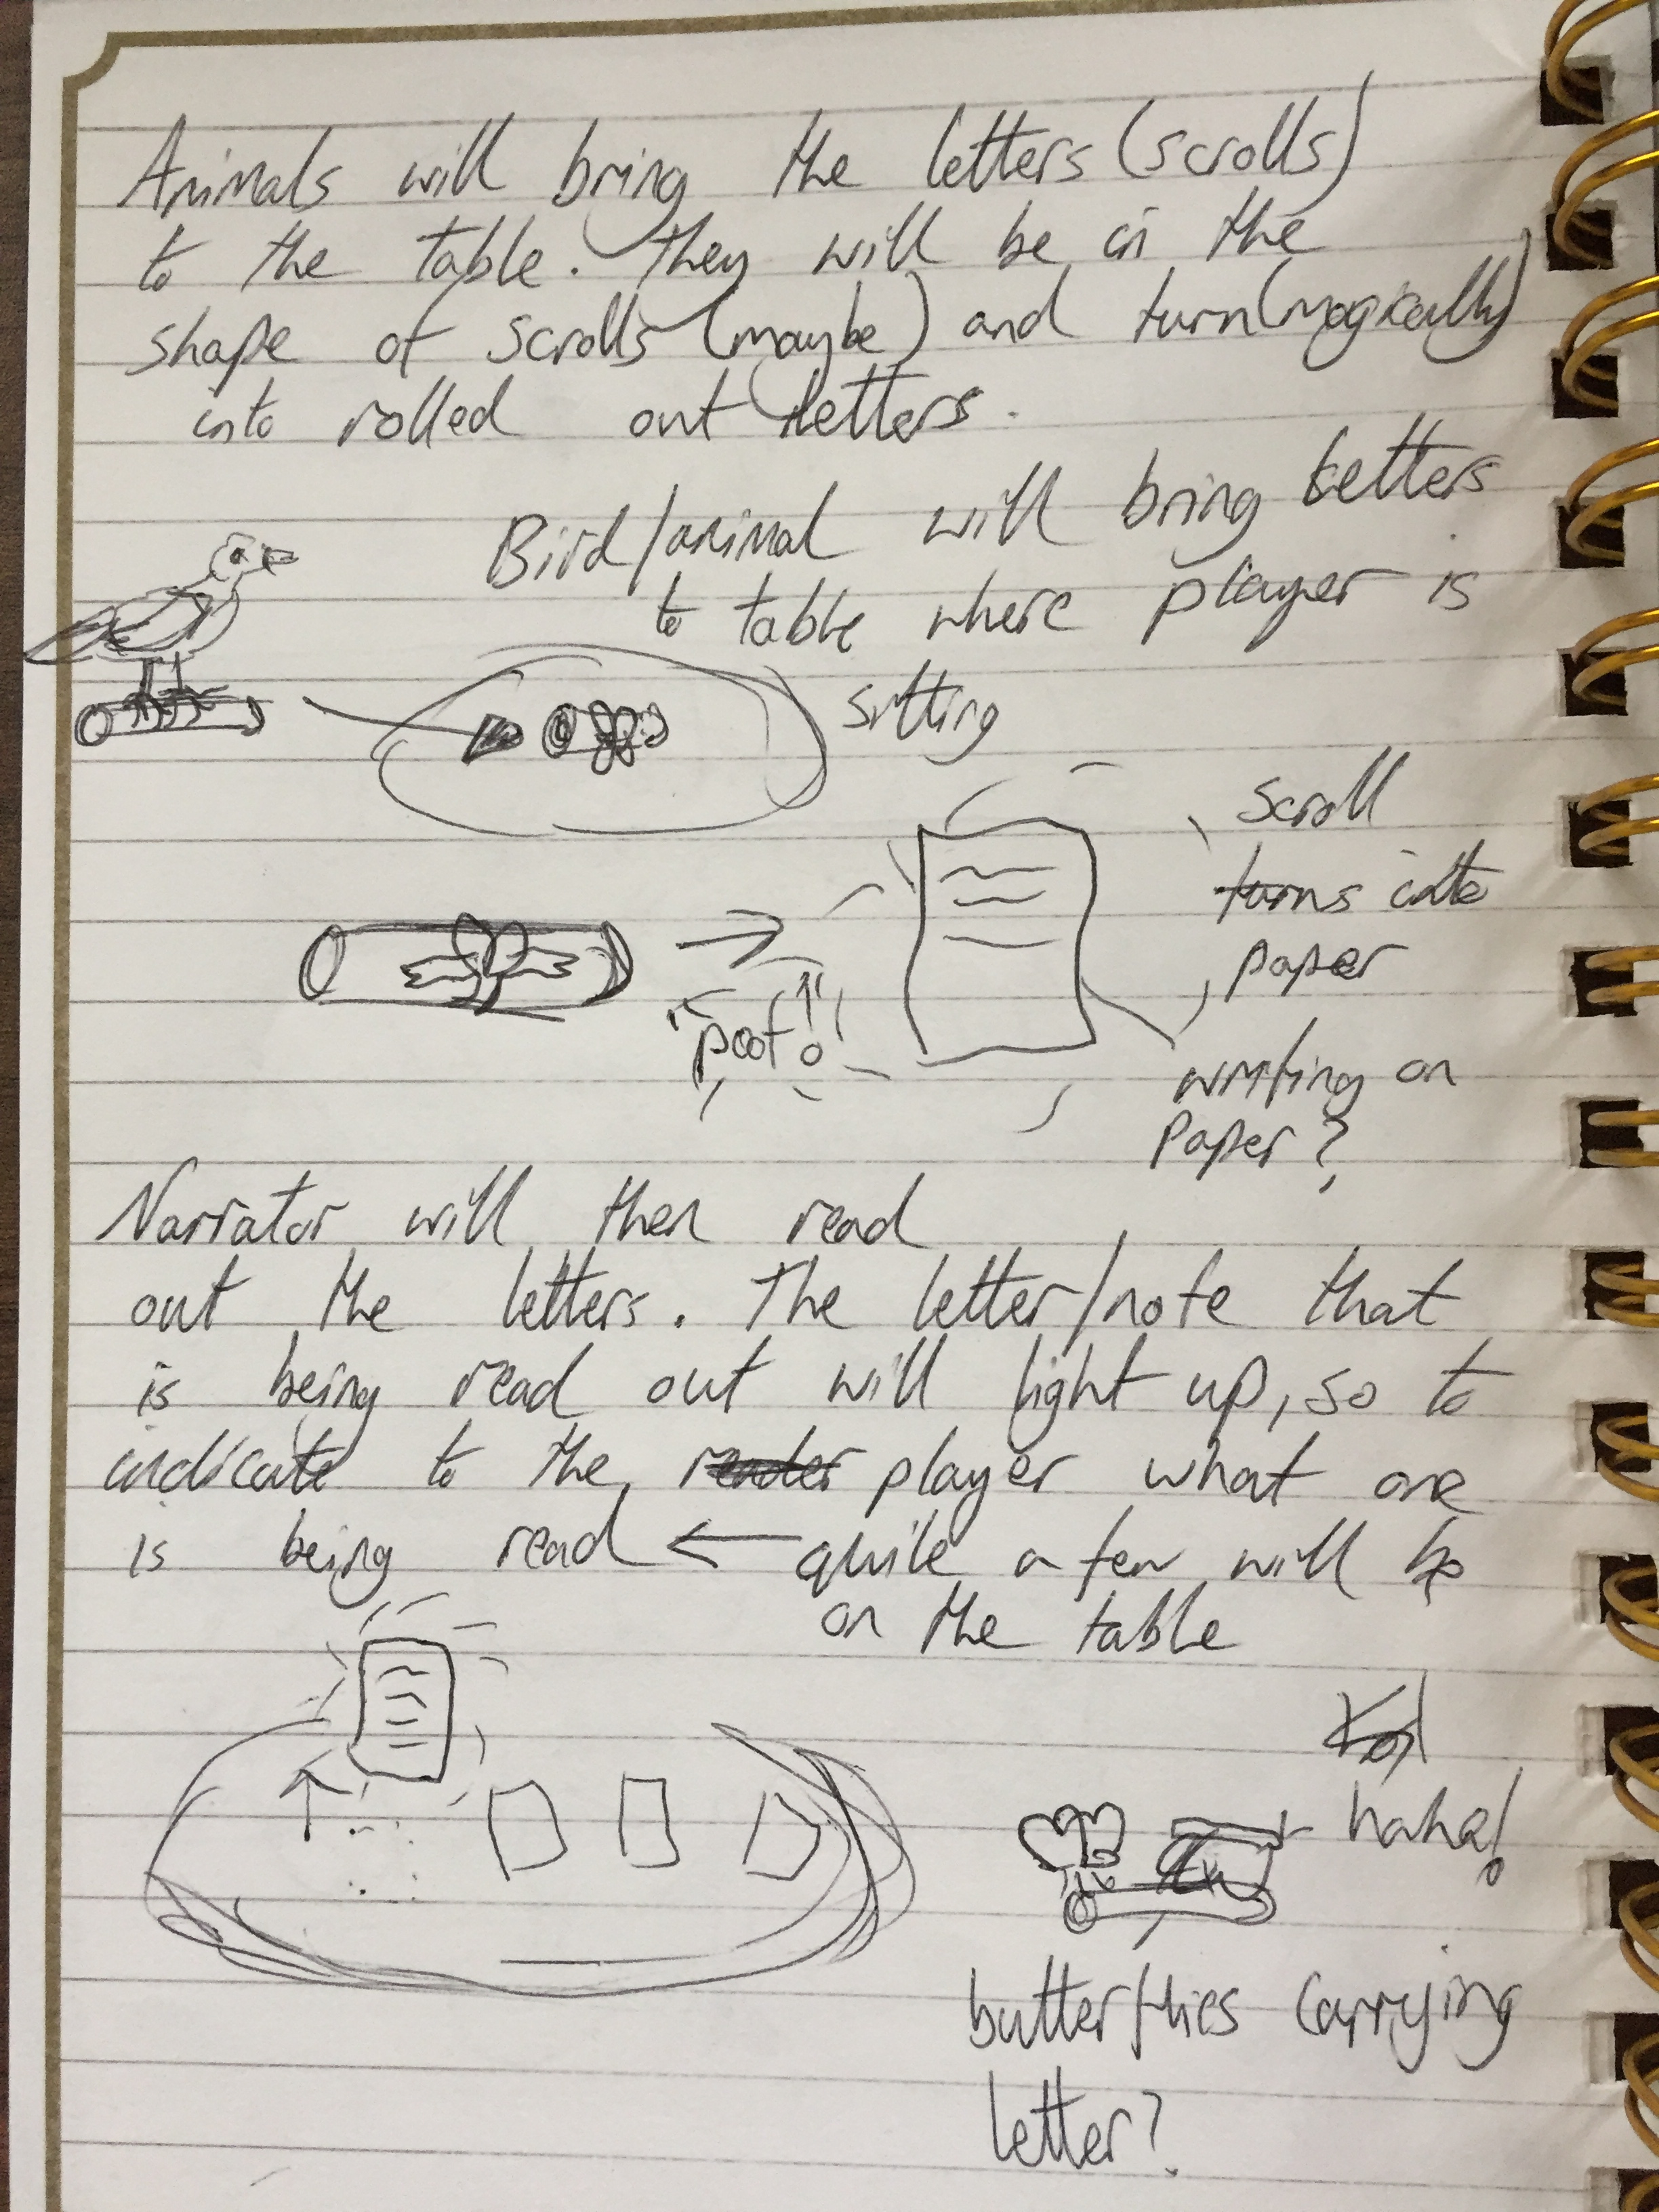 Animals will bring the letters (scrolls)
to the table. They will be in the
shape of scrolls (maybe) and turn (magically)
into rolled out letters.
Bird/animal will bring letters
to table where player is
sitting
scroll
turns into
paper
"poof!"
writing on
paper?
Narrator will then read
out the letters. The letter/note that
is being read out will light up, so to
indicate to the reader player what one
is being read ← quite a few will be
on the table
haha!
butterflies carrying
letter?